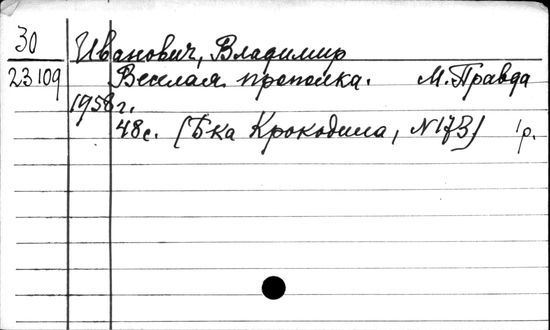 30 Иванович, Владимир
23109 Веселая прополка. М. Правда
1958г.
48с. (Б-ка Крокодила, N173) 1р.